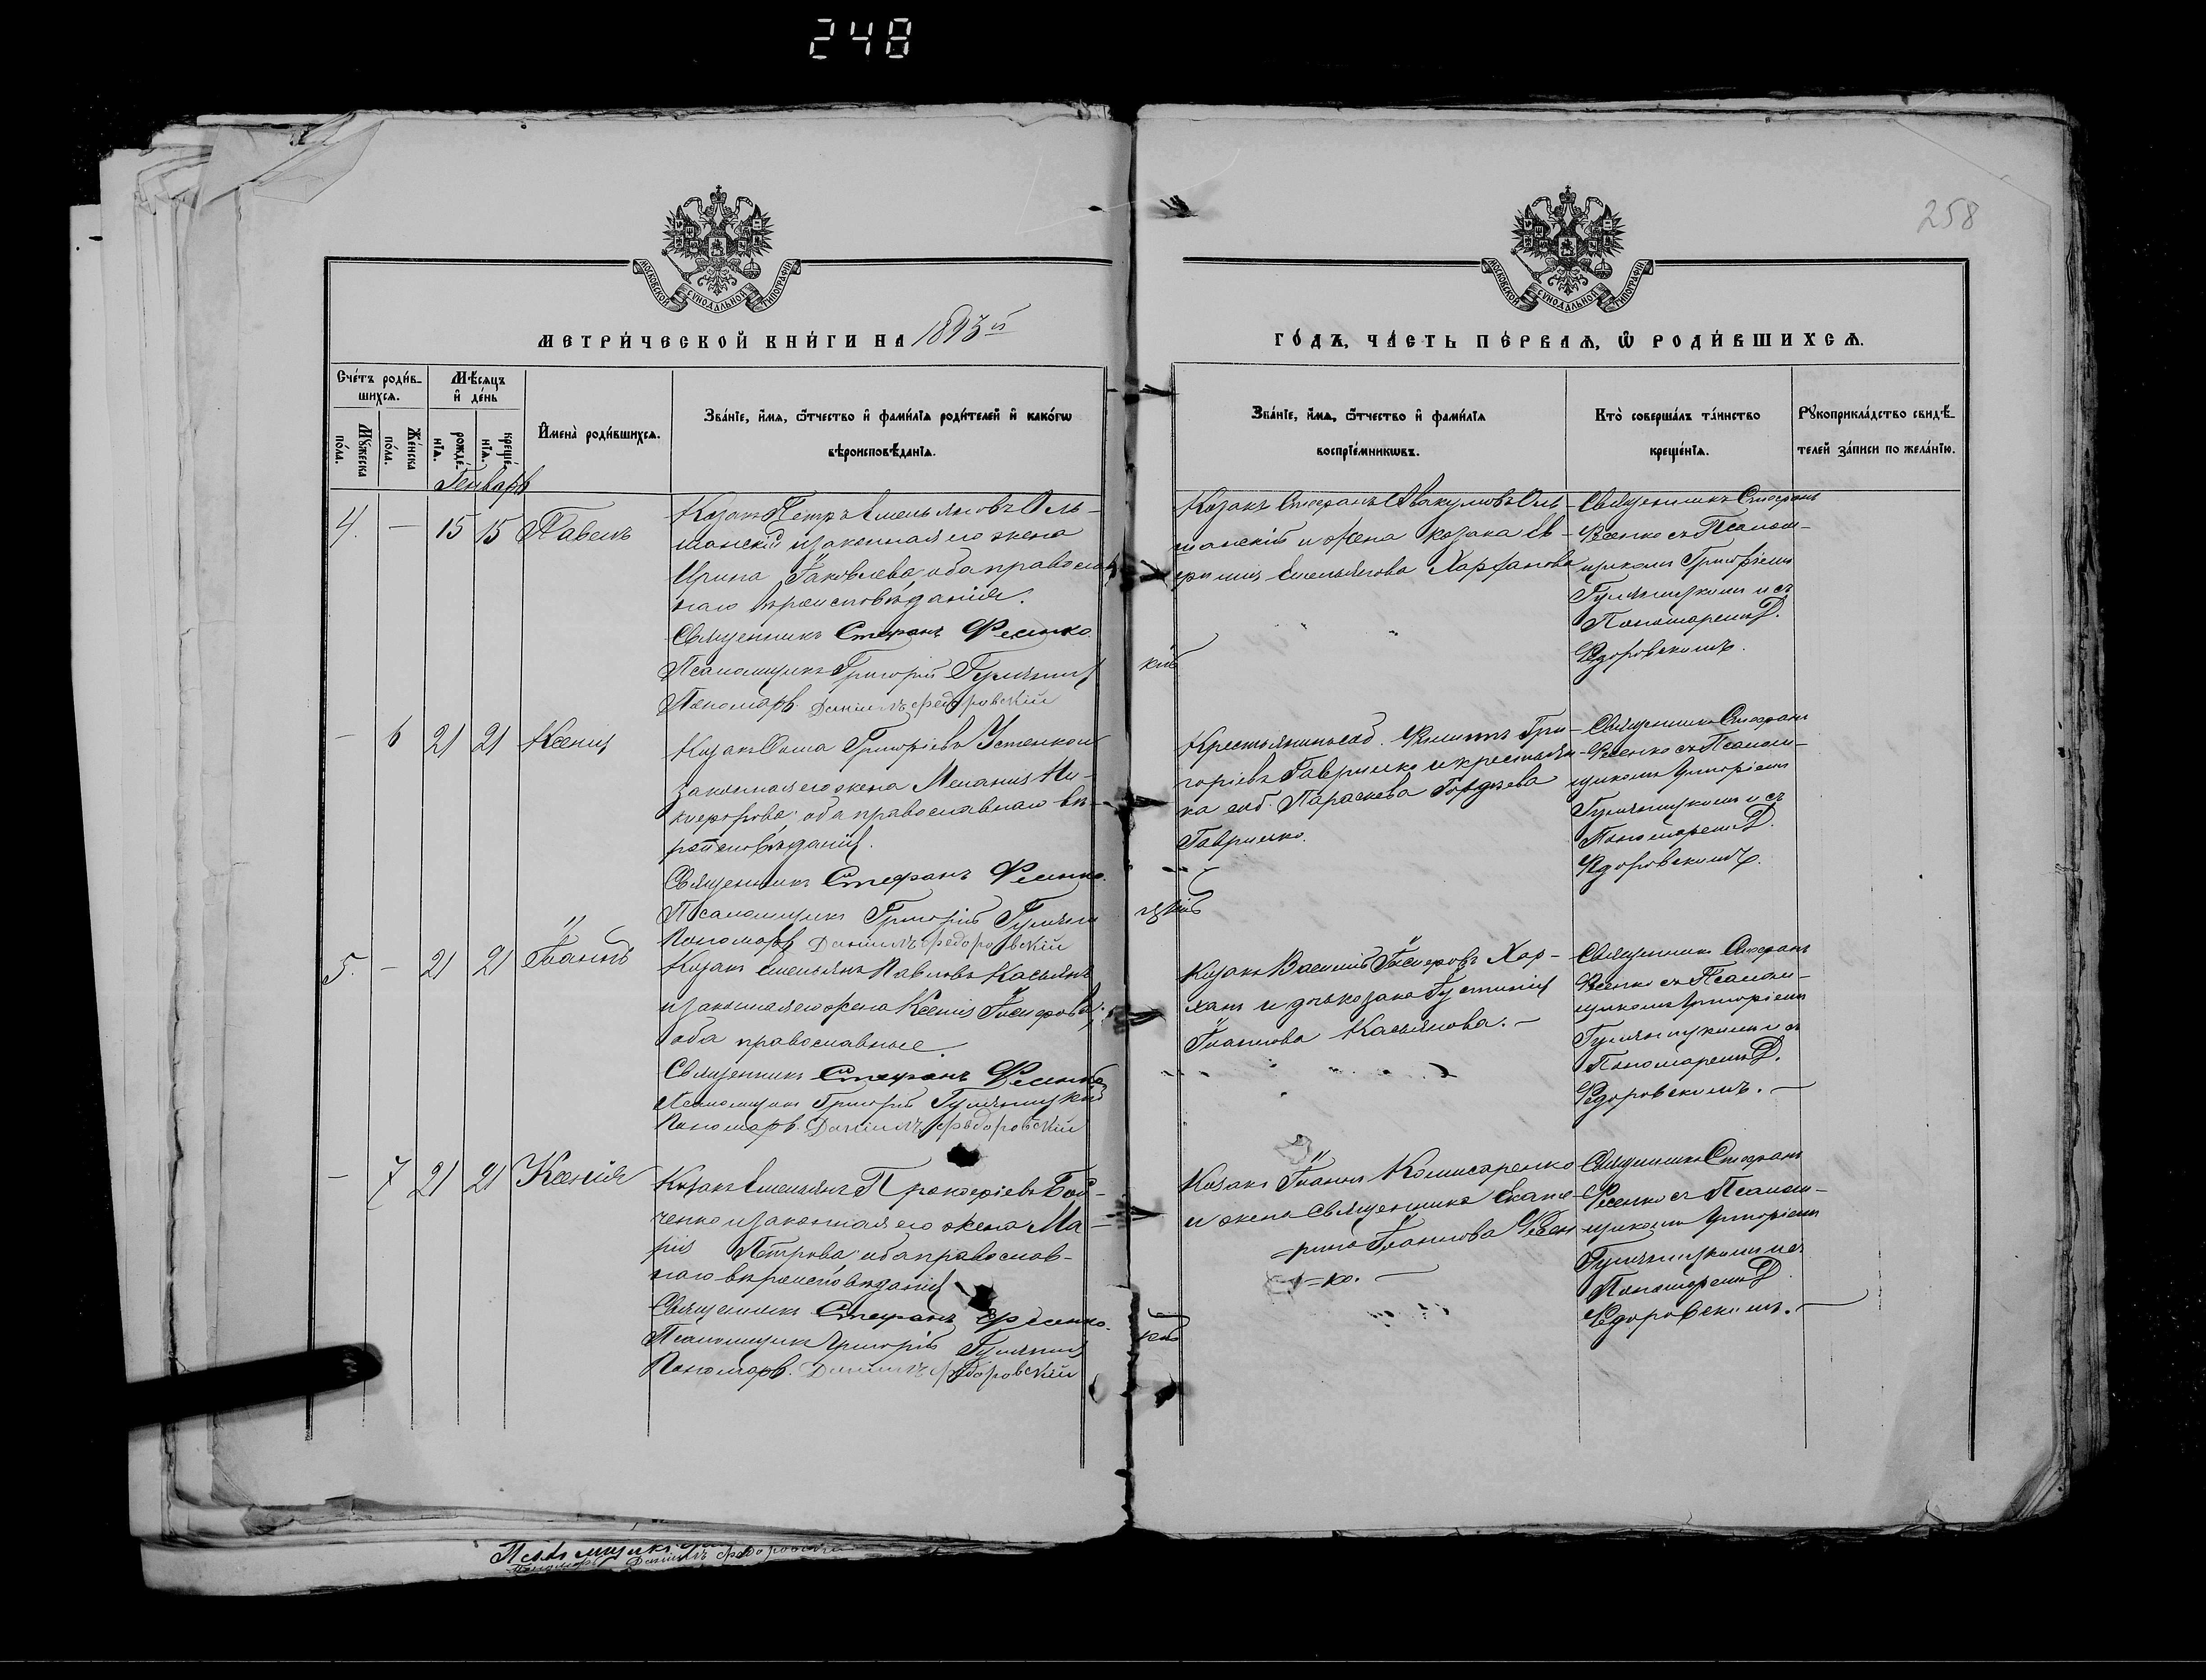 248
258
МОСКОВСКОЙ СѴНОДАЛЬНОЙ ТИПОГРАФІИ
МОСКОВСКОЙ СѴНОДАЛЬНОЙ ТИПОГРАФІИ
МЕТРИ́ЧЕСКОЙ КНИ́ГИ НА 1893й
ГО́ДЪ, ЧА́СТЬ ПЕ́РВАѦ, Ѽ РОДИ́ВШИХСѦ.
Сче́тъ роди́в-
шихсѧ.
Мꙋ́жеска по́ла.
Же́нска по́ла.
Мѣ́сѧцъ
и҆ де́нь
рожде́нїѧ.
креще́нїѧ.
И҆мена̀ роди́вшихсѧ.
Зва́нїе, и҆́мѧ, ѻ҆́тчество и҆ фами́лїѧ роди́телей и҆ како́гѡ
вѣроисповѣ́данїѧ.
Зва́нїе, и҆́мѧ, ѻ҆́тчество и҆ фами́лїѧ
воспрїе́мникѡвъ.
Кто̀ соверша́лъ та́инство
креще́нїѧ.
Рꙋкоприкла́дство свидѣ́-
телей за́писи по жела́нїю.
Генварь
4. — 15 15 Павелъ
Козакъ Петръ Емельяновъ Оль-
шанскій и законная его жена
Ирина Іаковлева, оба православ
наго вѣроисповѣданія.
Священникъ Стефанъ Фесенко
Псаломщикъ Григорій Гумяниц
кій
Пономарь Даніилъ Федоровскій
Козакъ Стефанъ Аввакумовъ Оль-
шанскій и жена козака Ев-
фимія Емельянова Харханова
Священникъ Стефанъ
Фесенко съ Псалом-
щикомъ Григоріемъ
Гумяницкимъ и съ
Пономаремъ Д.
Федоровскимъ.
— 6 21 21 Ксенія
Козакъ Ѳома Григоріевъ Устенко и
законная его жена Меланія Ни-
кифорова, оба православнаго вѣ-
роисповѣданія.
Священникъ Стефанъ Фесенко.
Псаломщикъ Григорій Гумяни
цкій
Пономарь Даніилъ Федоровскій
Крестьянинъ соб. Филиппъ Гри-
горіевъ Гавриленко и крестьян-
ка соб. Параскева Гордѣева
Гавриленко.
Священникъ Стефанъ
Фесенко съ Псалом-
щикомъ Григоріемъ
Гумяницкимъ и съ
Пономаремъ Д.
Федоровскимъ.
5. — 21 21 Іоаннъ
Козакъ Емельянъ Павловъ Касьянъ
и законная его жена Ксенія Іосифова,
оба православные.
Священникъ Стефанъ Фесенко
Псаломщикъ Григорій Гумяницкій
Пономарь Даніилъ Федоровскій
Козакъ Василій Іосифовъ Хар-
ханъ и дочь козака Іустинія
Іоаннова Касьянова. —
Священникъ Стефанъ
Фесенко съ Псалом-
щикомъ Григоріемъ
Гумяницкимъ и съ
Пономаремъ Д.
Федоровскимъ. —
— 7 21 21 Ксенія
Козакъ Емельянъ Прокофіевъ Бой-
ченко и законная его жена Ма-
рія Петрова, оба православ-
наго вѣроисповѣданія
Священникъ Стефанъ Фесенко.
Псаломщикъ Григорій Гумяниц
кій
Пономарь Даніилъ Федоровскій
Козакъ Іоаннъ Комисаренко
и жена Священника Екате-
=рина Іоаннова Фесен
=ко. —
Священникъ Стефанъ
Фесенко съ Псалом-
щикомъ Григоріемъ
Гумяницкимъ и съ
Пономаремъ Д.
Федоровскимъ. —
Псаломщикъ
Пономарь Даніилъ Федоровскій